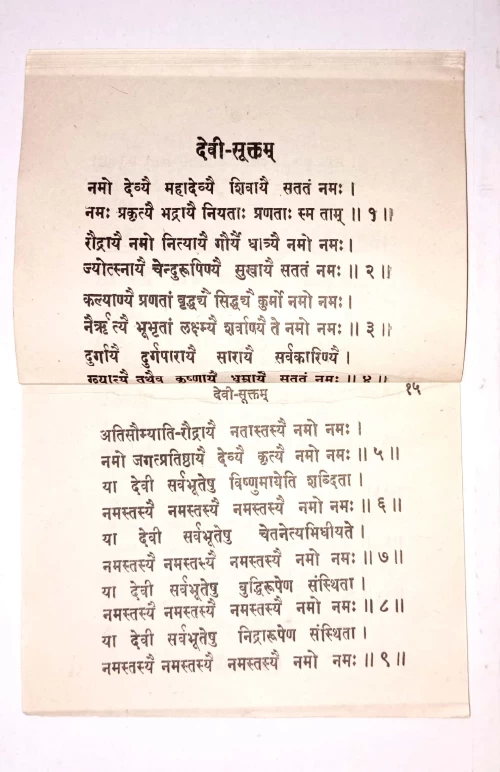 देवी-सूक्तम्
नमो देव्यै महादेव्यै शिवायै सततं नमः ।
नमः प्रकृत्यै भद्रायै नियताः प्रणताः स्म ताम् ॥ १ ॥
रौद्रायै नमो नित्यायै गौर्यै धात्र्यै नमो नमः ।
ज्योत्स्नायै चेन्दुरूपिण्यै सुखायै सततं नमः ॥ २ ॥
कल्याण्यै प्रणतां वृद्ध्यै सिद्ध्यै कुर्मो नमो नमः ।
नैर्ऋत्यै भूभृतां लक्ष्म्यै शर्वाण्यै ते नमो नमः ॥ ३ ॥
दुर्गायै दुर्गपारायै सारायै सर्वकारिण्यै ।
ख्यात्यै तथैव कृष्णायै धूम्रायै सततं नमः ॥ ४ ॥
देवी-सूक्तम् १५
अतिसौम्याति-रौद्रायै नतास्तस्यै नमो नमः ।
नमो जगत्प्रतिष्ठायै देव्यै कृत्यै नमो नमः ॥ ५ ॥
या देवी सर्वभूतेषु विष्णुमायेति शब्दिता ।
नमस्तस्यै नमस्तस्यै नमस्तस्यै नमो नमः ॥ ६ ॥
या देवी सर्वभूतेषु चेतनेत्यभिधीयते ।
नमस्तस्यै नमस्तस्यै नमस्तस्यै नमो नमः ॥ ७ ॥
या देवी सर्वभूतेषु बुद्धिरूपेण संस्थिता ।
नमस्तस्यै नमस्तस्यै नमस्तस्यै नमो नमः ॥ ८ ॥
या देवी सर्वभूतेषु निद्रारूपेण संस्थिता ।
नमस्तस्यै नमस्तस्यै नमस्तस्यै नमो नमः ॥ ९ ॥